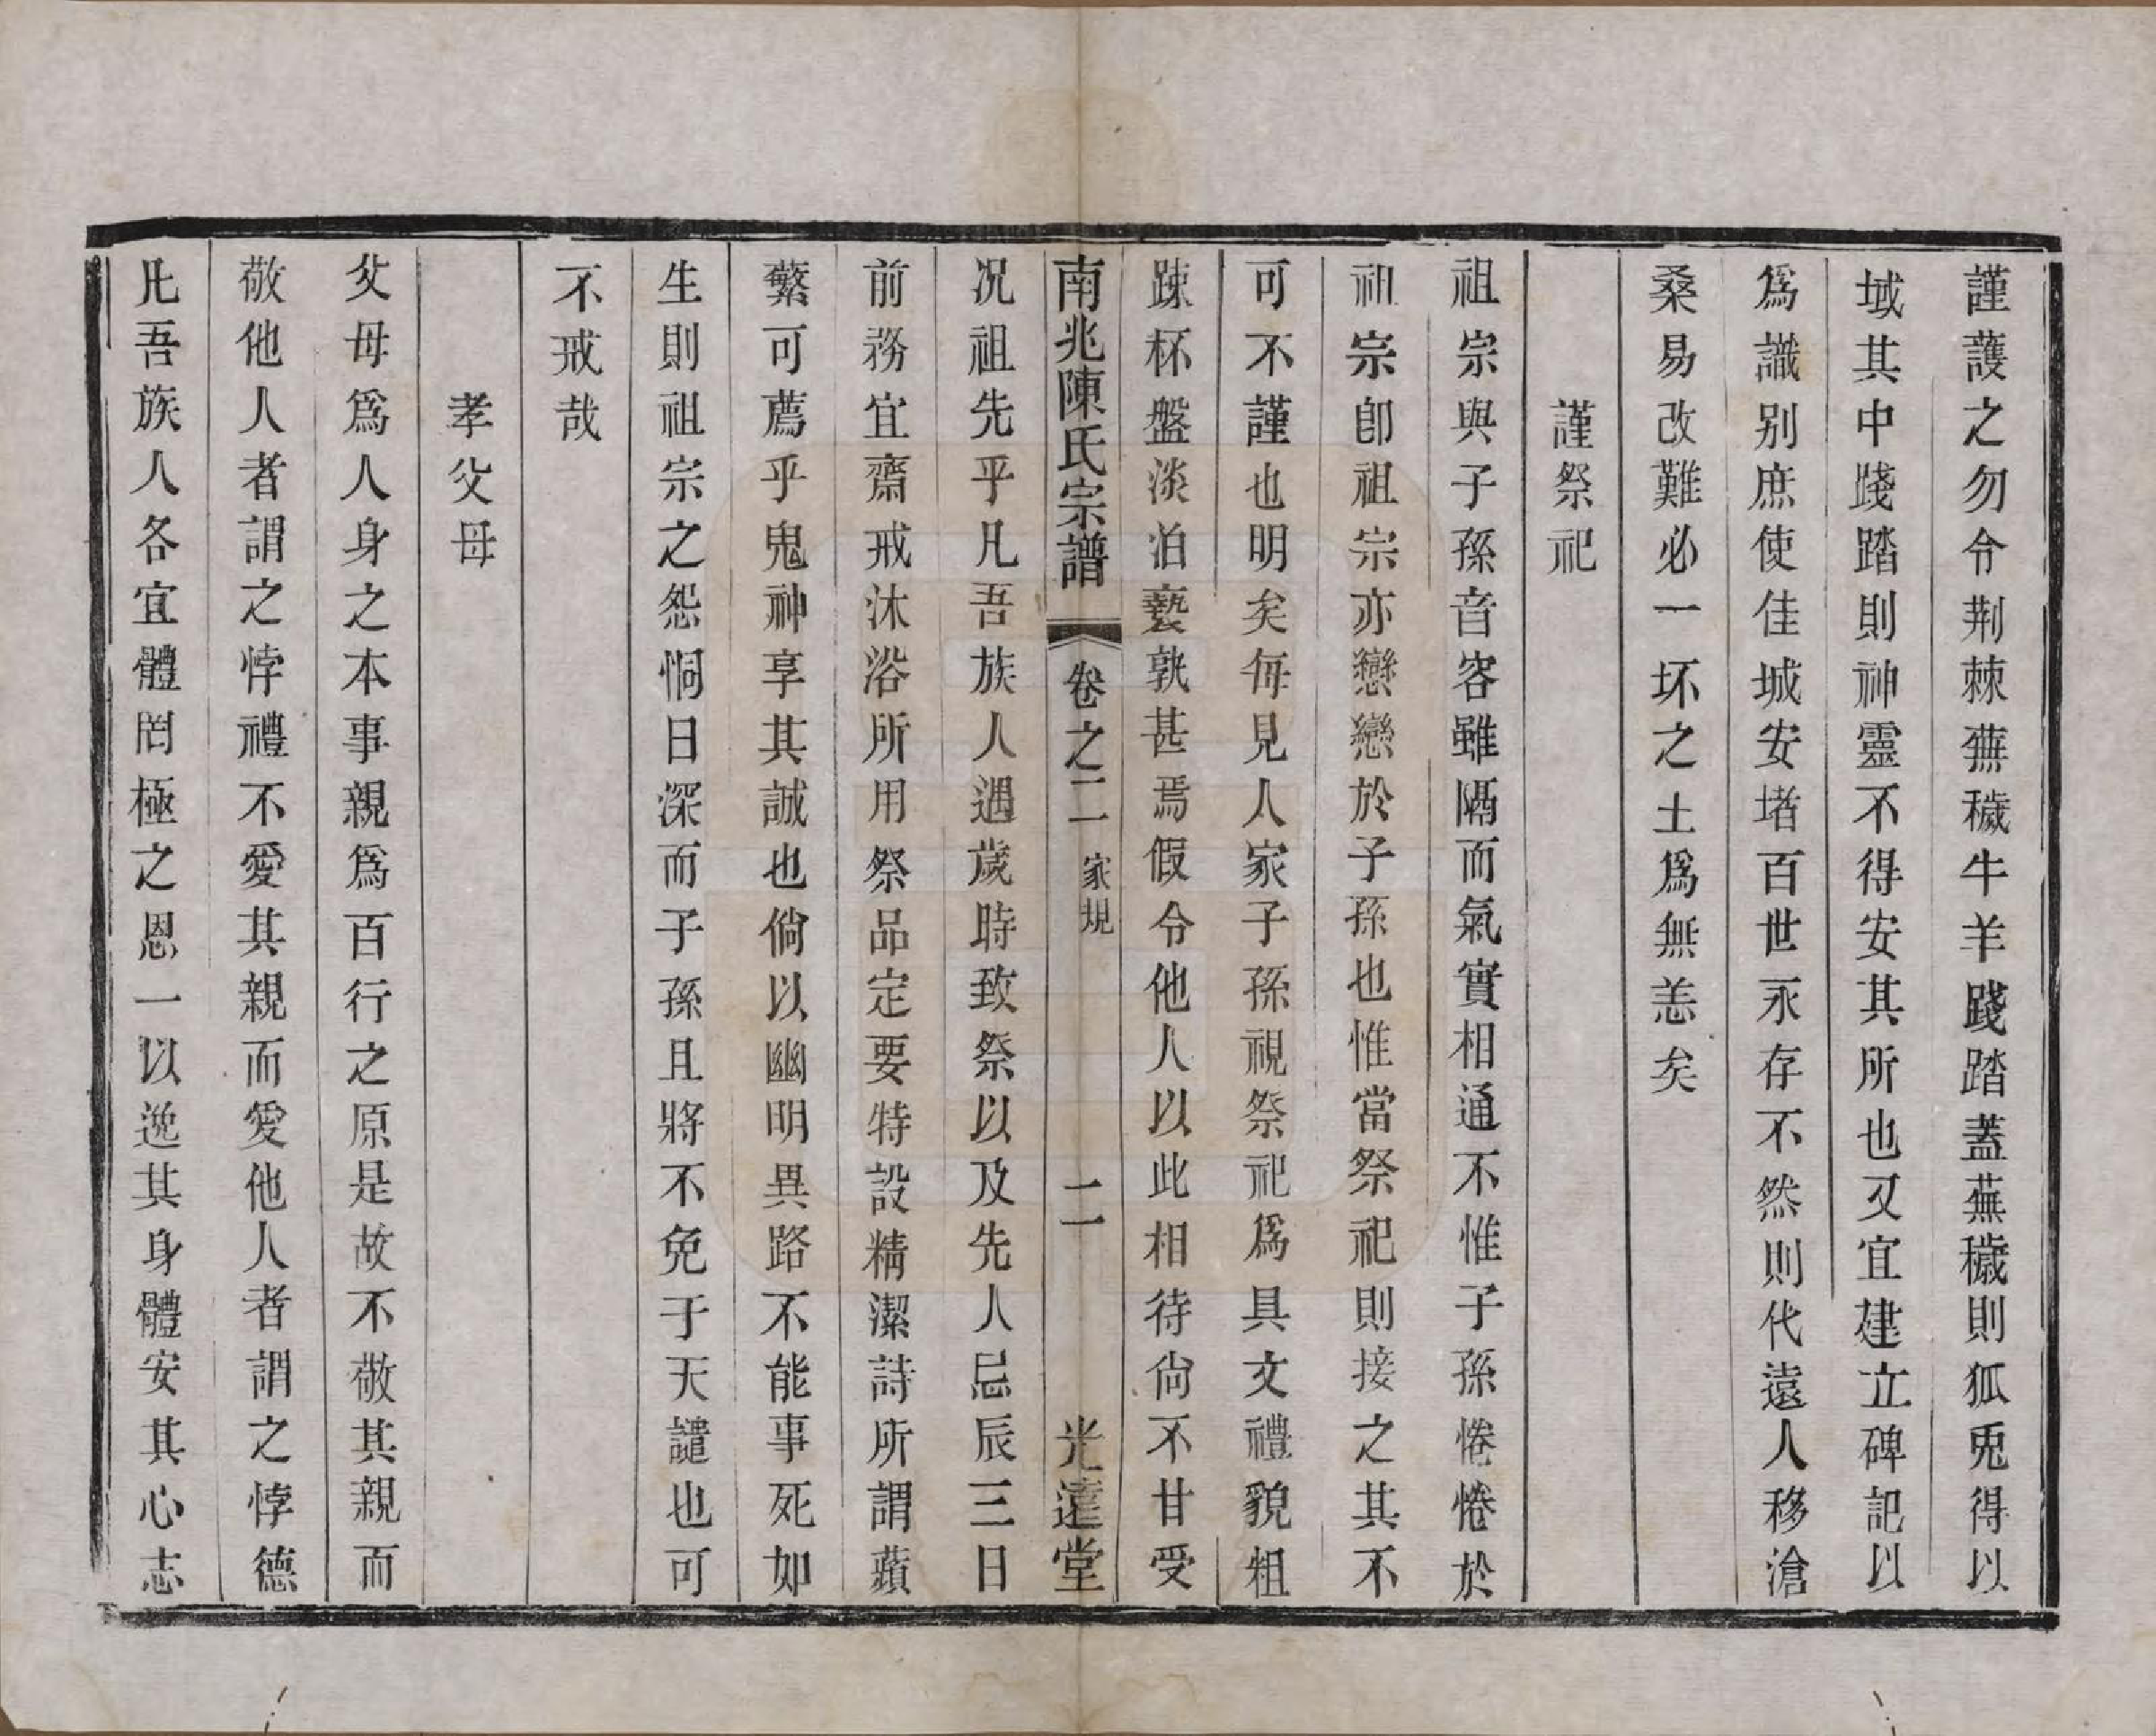 謹護之勿令荆棘蕪穢牛羊踐踏蓋蕪穢則狐兎得以
域其中踐踏則神靈不得安其所也又宜建立碑記以
爲識别庶使佳城安堵百世永存不然則代遠人移滄
桑易改難必一坏之土爲無恙矣
謹祭祀
祖宗與子孫音容雖隔而氣實相通不惟子孫惓惓於
祖宗卽祖宗亦戀戀於子孫也惟當祭祀則接之其不
可不謹也明矣每見人家子孫視祭祀爲具文禮貌粗
疎杯盤淡泊褻孰甚焉假令他人以此相待尙不甘受
南兆陳氏宗譜
卷之二
家規
二
光遠堂
况祖先乎凡吾族人遇歲時致祭以及先人忌辰三日
前務宜齋戒沐浴所用祭品定要特設精潔詩所謂蘋
蘩可薦乎鬼神享其誠也倘以幽明異路不能事死如
生則祖宗之怨恫日深而子孫且將不免于天譴也可
不戒哉
孝父母
父母爲人身之本事親爲百行之原是故不敬其親而
敬他人者謂之悖禮不愛其親而愛他人者謂之悖德
凡吾族人各宜體罔極之恩一以逸其身體安其心志